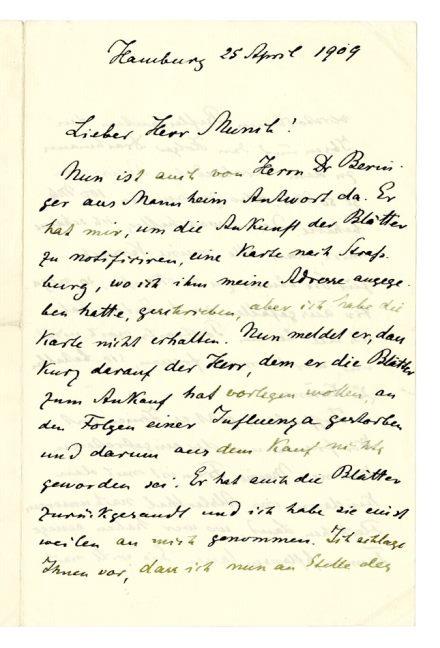 Hamburg 25 April 1909
Lieber Herr Munch!
Nun ist auch von Herrn Dr Berin-
ger aus Mannheim Antwort da. Er
hat mir, um die Ankunft der Blätter
zu notifiriren, eine Karte nach Straß-
burg, wo ich ihm meine Adresse angege-
ben hatte, geschrieben, aber ich habe die
Karte nicht erhalten. Nun meldet er, dass
kurz darauf der Herr, dem er die Blätter
zum Ankauf hat vorlegen wollen, an
den Folgen einer Influenza gestorben
und darum aus dem Kauf nichts
geworden sei. Er hat auch die Blätter
zurückgesandt und ich habe sie einst
weilen an mich genommen. Ich schlage
Ihnen vor, dass ich nun an Stelle des